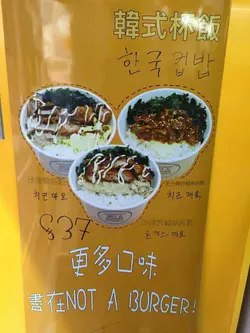 韓式杯飯
한국 컵밥
치킨 마요
치즈 제육
돈까스 마요
$37
更多口味
盡在NOT A BURGER!